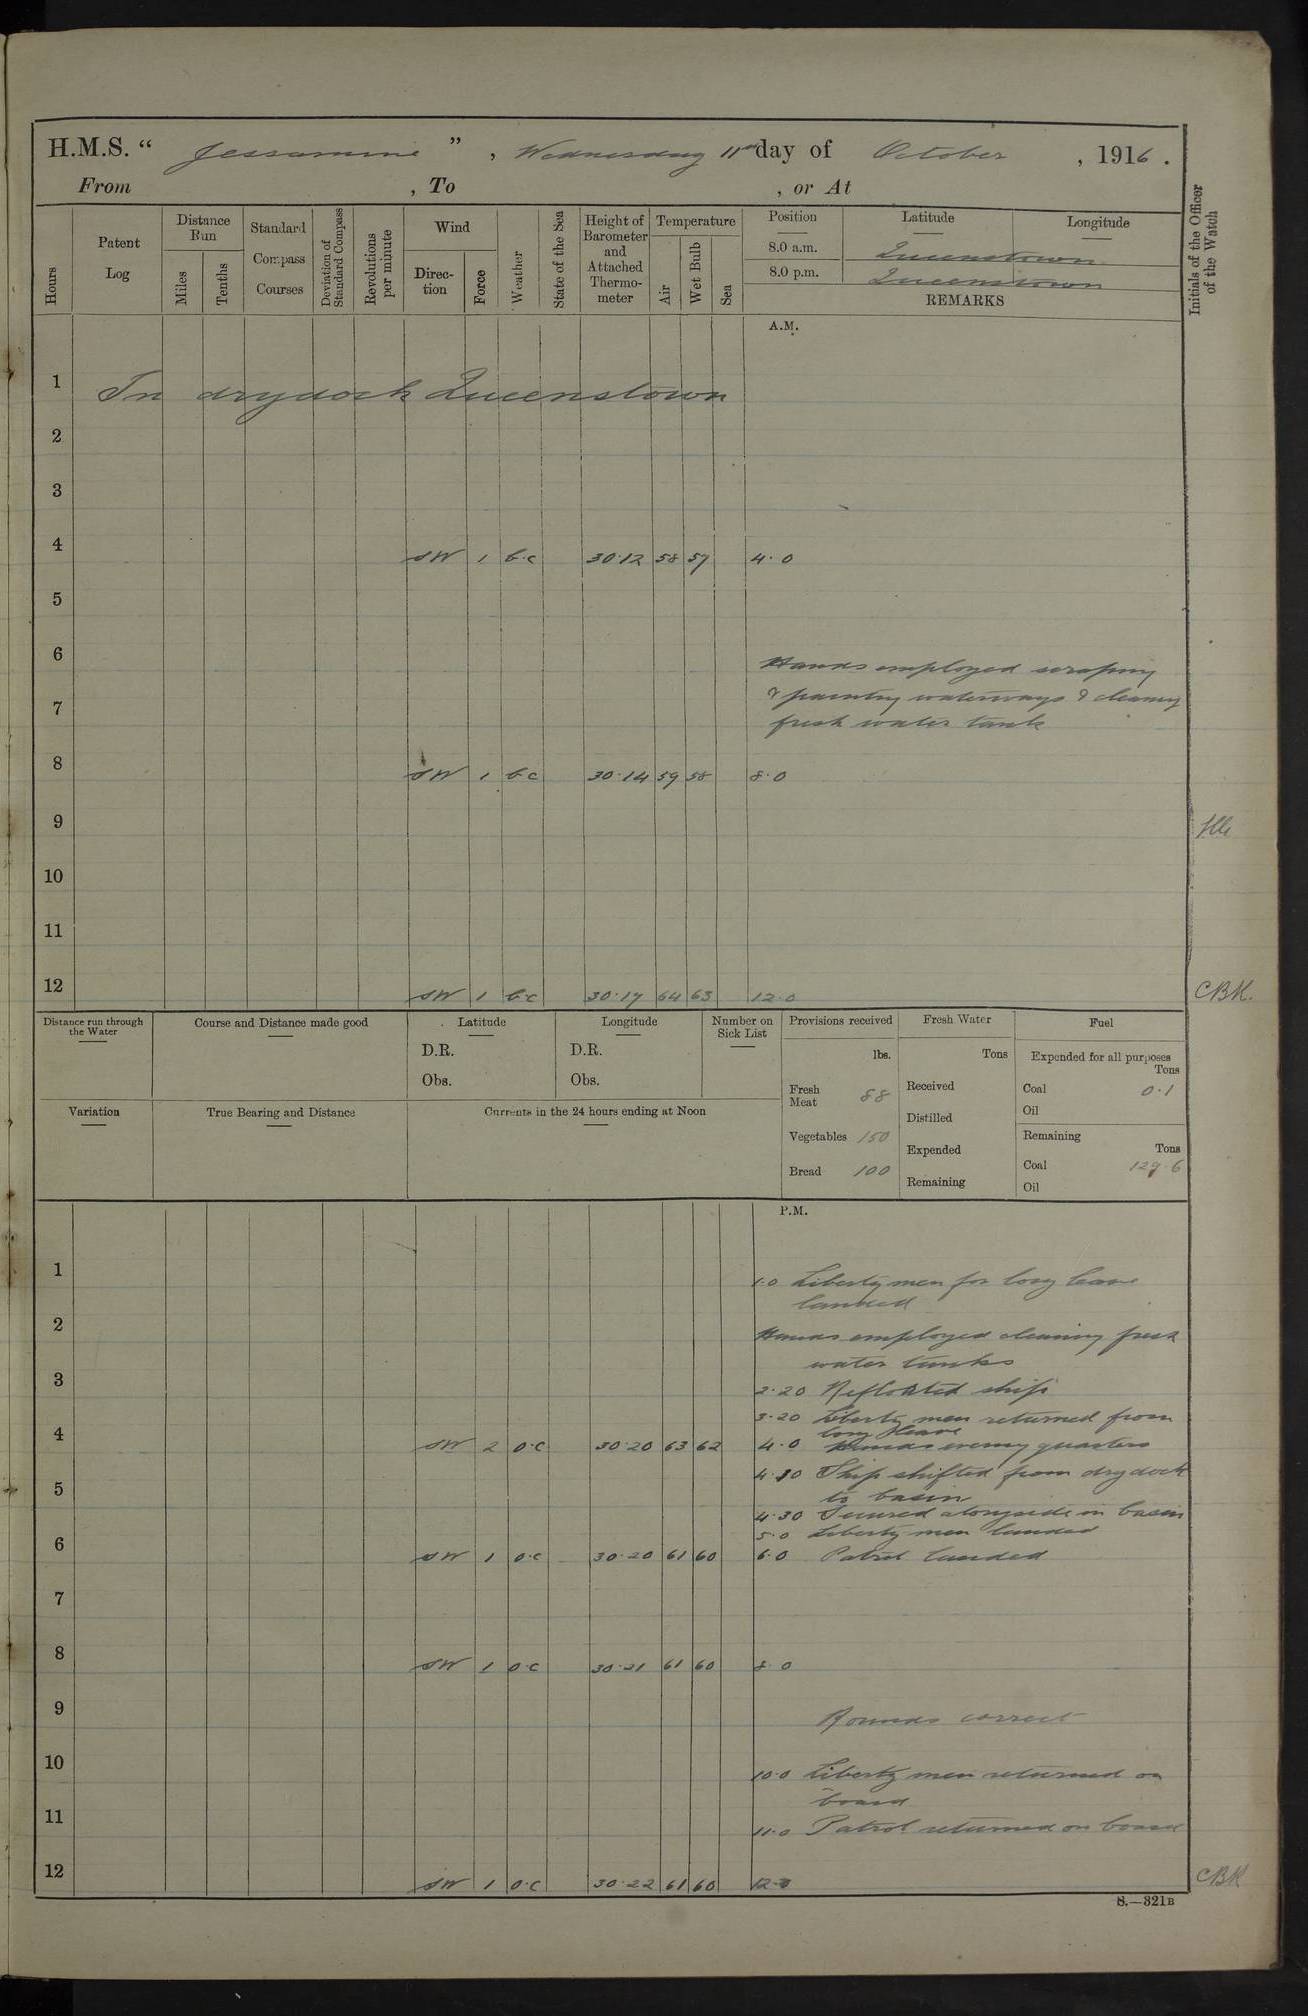 H.M.S. “ Jessamine ” , Wednesday 11th day of October , 1916 .
From , To , or At
Hours
Patent Log
Distance Run
Miles
Tenths
Standard Compass Courses
Deviation of Standard Compass
Revolutions per minute
Wind
Direction
Force
Weather
State of the Sea
Height of Barometer and Attached Thermometer
Temperature
Air
Wet Bulb
Sea
Position
Latitude
Longitude
8.0 a.m. Queenstown
8.0 p.m. Queenstown
REMARKS
Initials of the Officer of the Watch
A.M.
1 In drydock Queenstown
2
3
4 SW 1 b.c 30.12 58 57 4.0
5
6 Hands employed scraping
& painting waterways & cleaning
7 fresh water tank
8 SW 1 bc 30.14 59 58 8.0
9
10
11
12 SW 1 b.c 30.17 64 63 12.0 CBK.
Distance run through the Water
Course and Distance made good
Latitude
D.R.
Obs.
Longitude
D.R.
Obs.
Number on Sick List
Provisions received
lbs.
Fresh Meat 88
Vegetables 150
Bread 100
Fresh Water
Tons
Received
Distilled
Expended
Remaining
Fuel
Expended for all purposes
Tons
Coal 0.1
Oil
Remaining
Tons
Coal 129.6
Oil
Variation
True Bearing and Distance
Currents in the 24 hours ending at Noon
P.M.
1 1.0 Liberty men for long leave
landed
2 Hands employed cleaning fresh
water tanks
3 2.20 Refloated ship
3.20 Liberty men returned from
long leave
4 SW 2 o.c 30.20 63 62 4.0 Hands evening quarters
Ship shifted from dry dock
5 to basin
4.30 Secured alongside in basin
5.0 Liberty men landed
6 SW 1 o.c 30.20 61 60 6.0 Patrol landed
7
8 SW 1 o.c 30.21 61 60 8.0
9 Rounds correct
10 10.0 Liberty men returned on
board
11 11.0 Patrol returned on board
12 SW 1 o.c 30.22 61 60 12.0 CBK
S.—321B